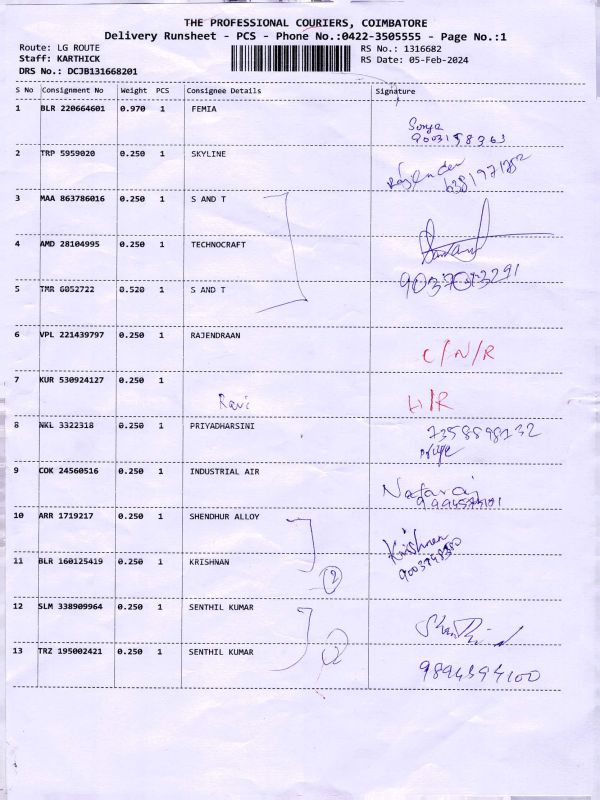 THE PROFESSIONAL COURIERS, COIMBATORE
Delivery Runsheet - PCS - Phone No.:0422-3505555 - Page No.:1
Route: LG ROUTE RS No.: 1316682
Staff: KARTHICK RS Date: 05-Feb-2024
DRS No.: DCJB131668201
S No Consignment No Weight PCS Consignee Details Signature
1 BLR 220664601 0.970 1 FEMIA
9003158363
2 TRP 5959020 0.250 1 SKYLINE
Rajender
6381971752
3 MAA 863786016 0.250 1 S AND T
4 AMD 28104995 0.250 1 TECHNOCRAFT
9037073291
5 TMR G052722 0.520 1 S AND T
6 VPL 221439797 0.250 1 RAJENDRAAN
C/N/R
7 KUR 530924127 0.250 1
Ravi H/R
8 NKL 3322318 0.250 1 PRIYADHARSINI
7358898732
9 COK 24560516 0.250 1 INDUSTRIAL AIR
Nataraj
10 ARR 1719217 0.250 1 SHENDHUR ALLOY
Krishnan
11 BLR 160125419 0.250 1 KRISHNAN
2
12 SLM 338909964 0.250 1 SENTHIL KUMAR
13 TRZ 195002421 0.250 1 SENTHIL KUMAR
2
9894394100